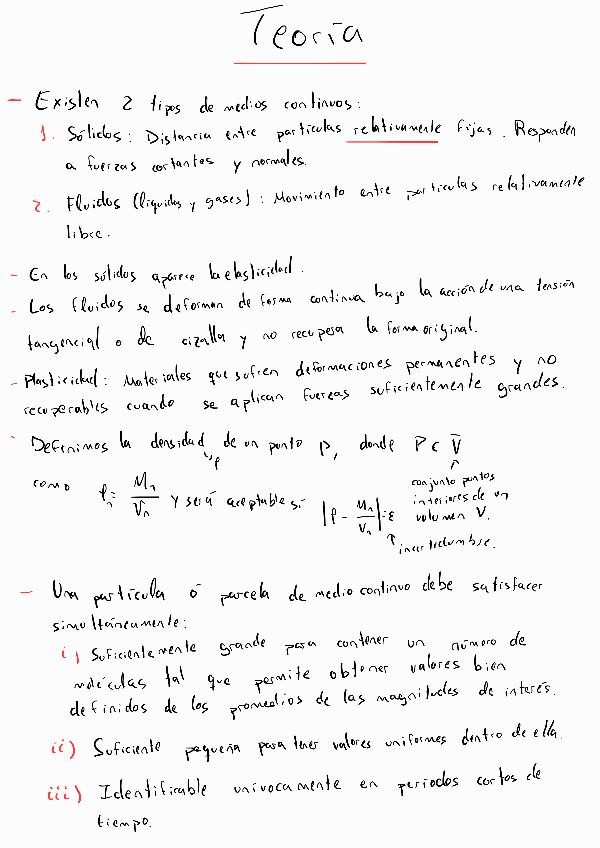 Teoría
- Existen 2 tipos de medios continuos:
1. Sólidos: Distancia entre partículas relativamente fijas. Responden
a fuerzas cortantes y normales.
2. Fluidos (líquidos y gases): Movimiento entre partículas relativamente
libre.
- En los sólidos aparece la elasticidad.
- Los fluidos se deforman de forma continua bajo la acción de una tensión
tangencial o de cizalla y no recupera la forma original.
- Plasticidad: Materiales que sufren deformaciones permanentes y no
recuperables cuando se aplican fuerzas suficientemente grandes.
- Definimos la densidad de un punto P, donde P ⊂ V̄
ρ
como ρₙ = Mₙ/Vₙ y será aceptable si |ρ - Mₙ/Vₙ| = ε
conjunto puntos
interiores de un
volumen V.
incertidumbre.
- Una partícula ó parcela de medio continuo debe satisfacer
simultáneamente:
i) Suficientemente grande para contener un número de
moléculas tal que permite obtener valores bien
definidos de los promedios de las magnitudes de interés.
ii) Suficiente pequeña para tener valores uniformes dentro de ella.
iii) Identificable unívocamente en periodos cortos de
tiempo.